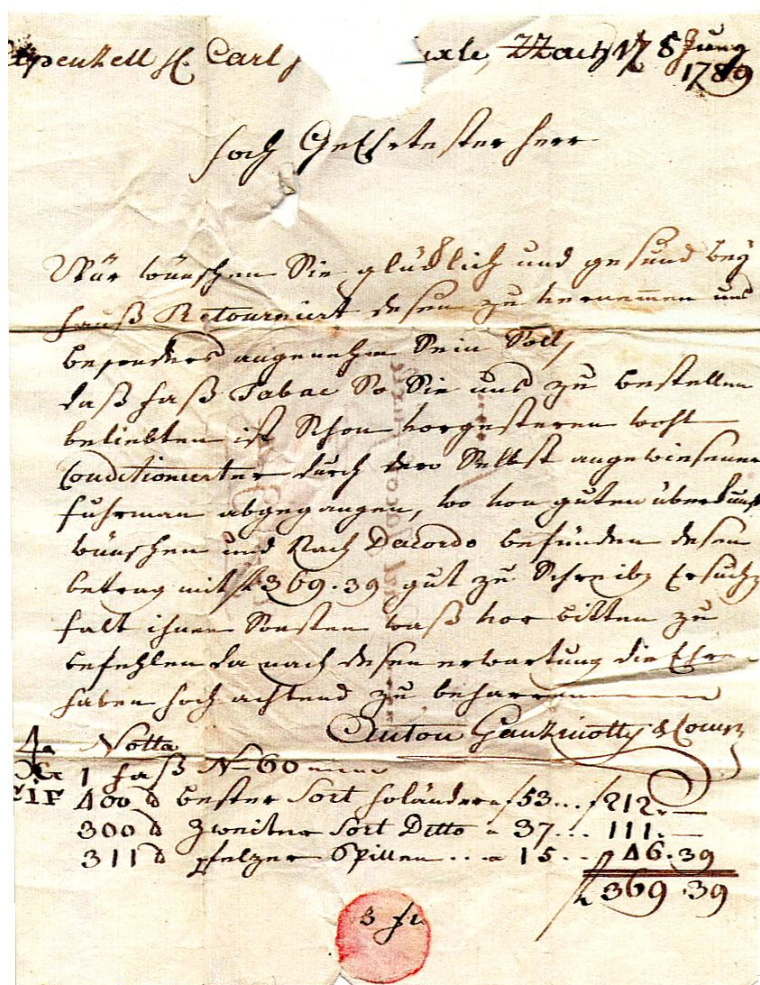 Appenzell H. Carl
1789
Hoch Geehrtester Herr
Wür wünschen Sie glücklich und gesund bey
Hauß Retournirt desen zu vernemmen uns
besonders angenehm Sein Soll,
daß Faß Tabac So Sie uns zu bestellen
beliebten ist Schon vorgesteren wohl
Conditionierter durch dero Selbst angewiesenen
fuhrman abgegangen, wo von guten überkunft
wünschen und Nach Dacordo befünden desen
betrag mit f 369.39 gut zu Schreiben Ersuchen
falt ihnen Sonsten waß vor bitten zu
befehlen da nach desen erwartung die Ehre
haben hoch achtend zu beharren
Anton
Notta
1 Faß N 60
400 bester Sort holänder f 53... f 212.—
300 Zweiter Sort Ditto 37... 111.—
311 pfelzer 15.. 46.39
f 369.39
3